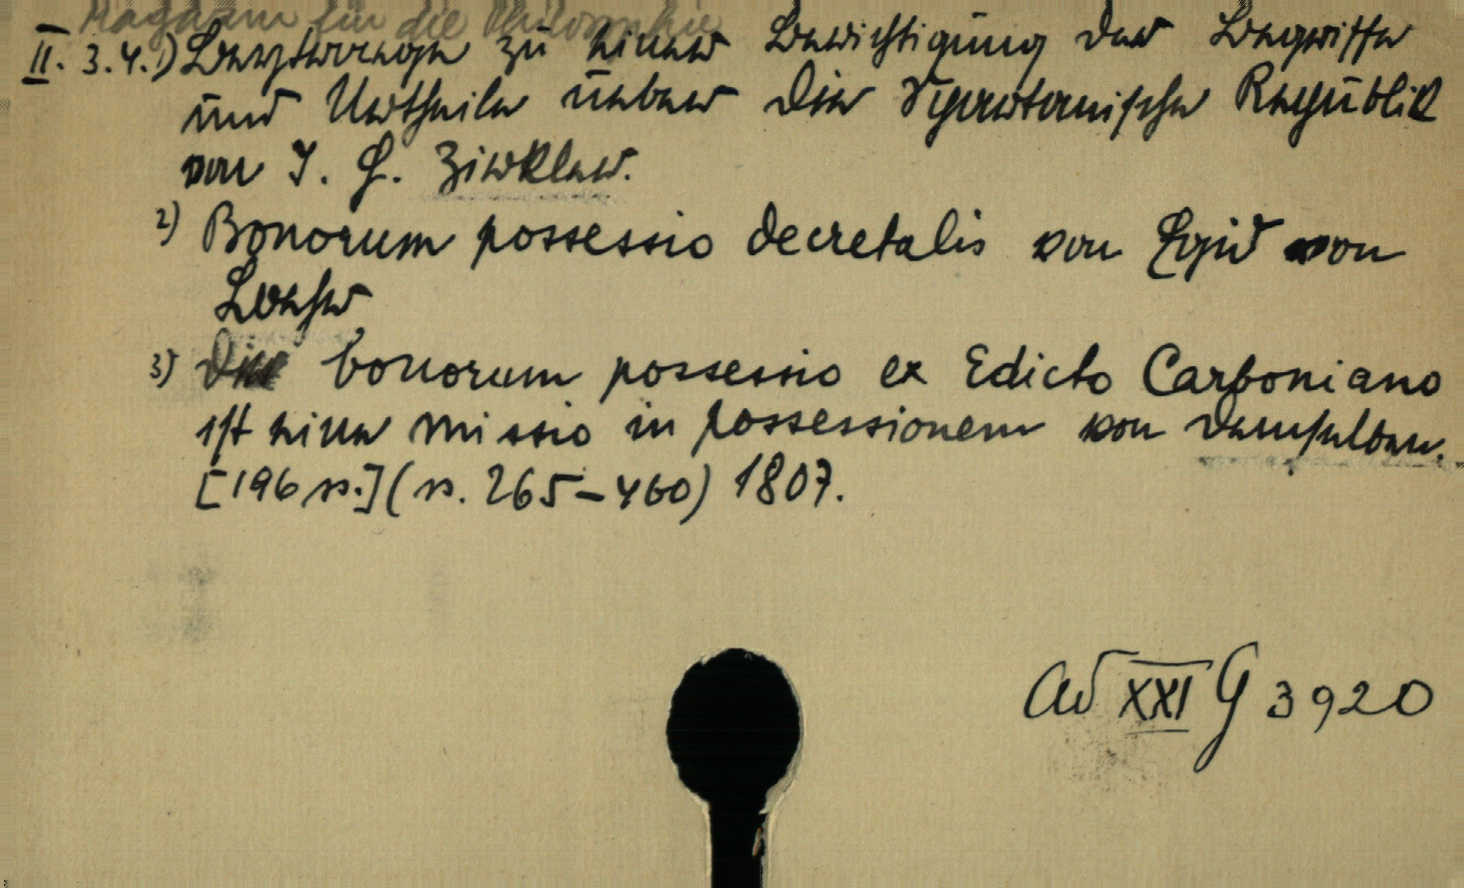 Magazin für die Philosophie
II. 3.4. 1) Beytraege zu einer Berichtigung der Begriffe
und Urtheile ueber die Spartanische Republik
von J. H. Zirkler.
2) Bonorum possessio decretalis von Egid von
Loehr
3) Die bonorum possessio ex Edicto Carboniano
ist eine missio in possessionem von demselben.
[196 s.] (s. 265-460) 1807.
Ad XXI G 3920